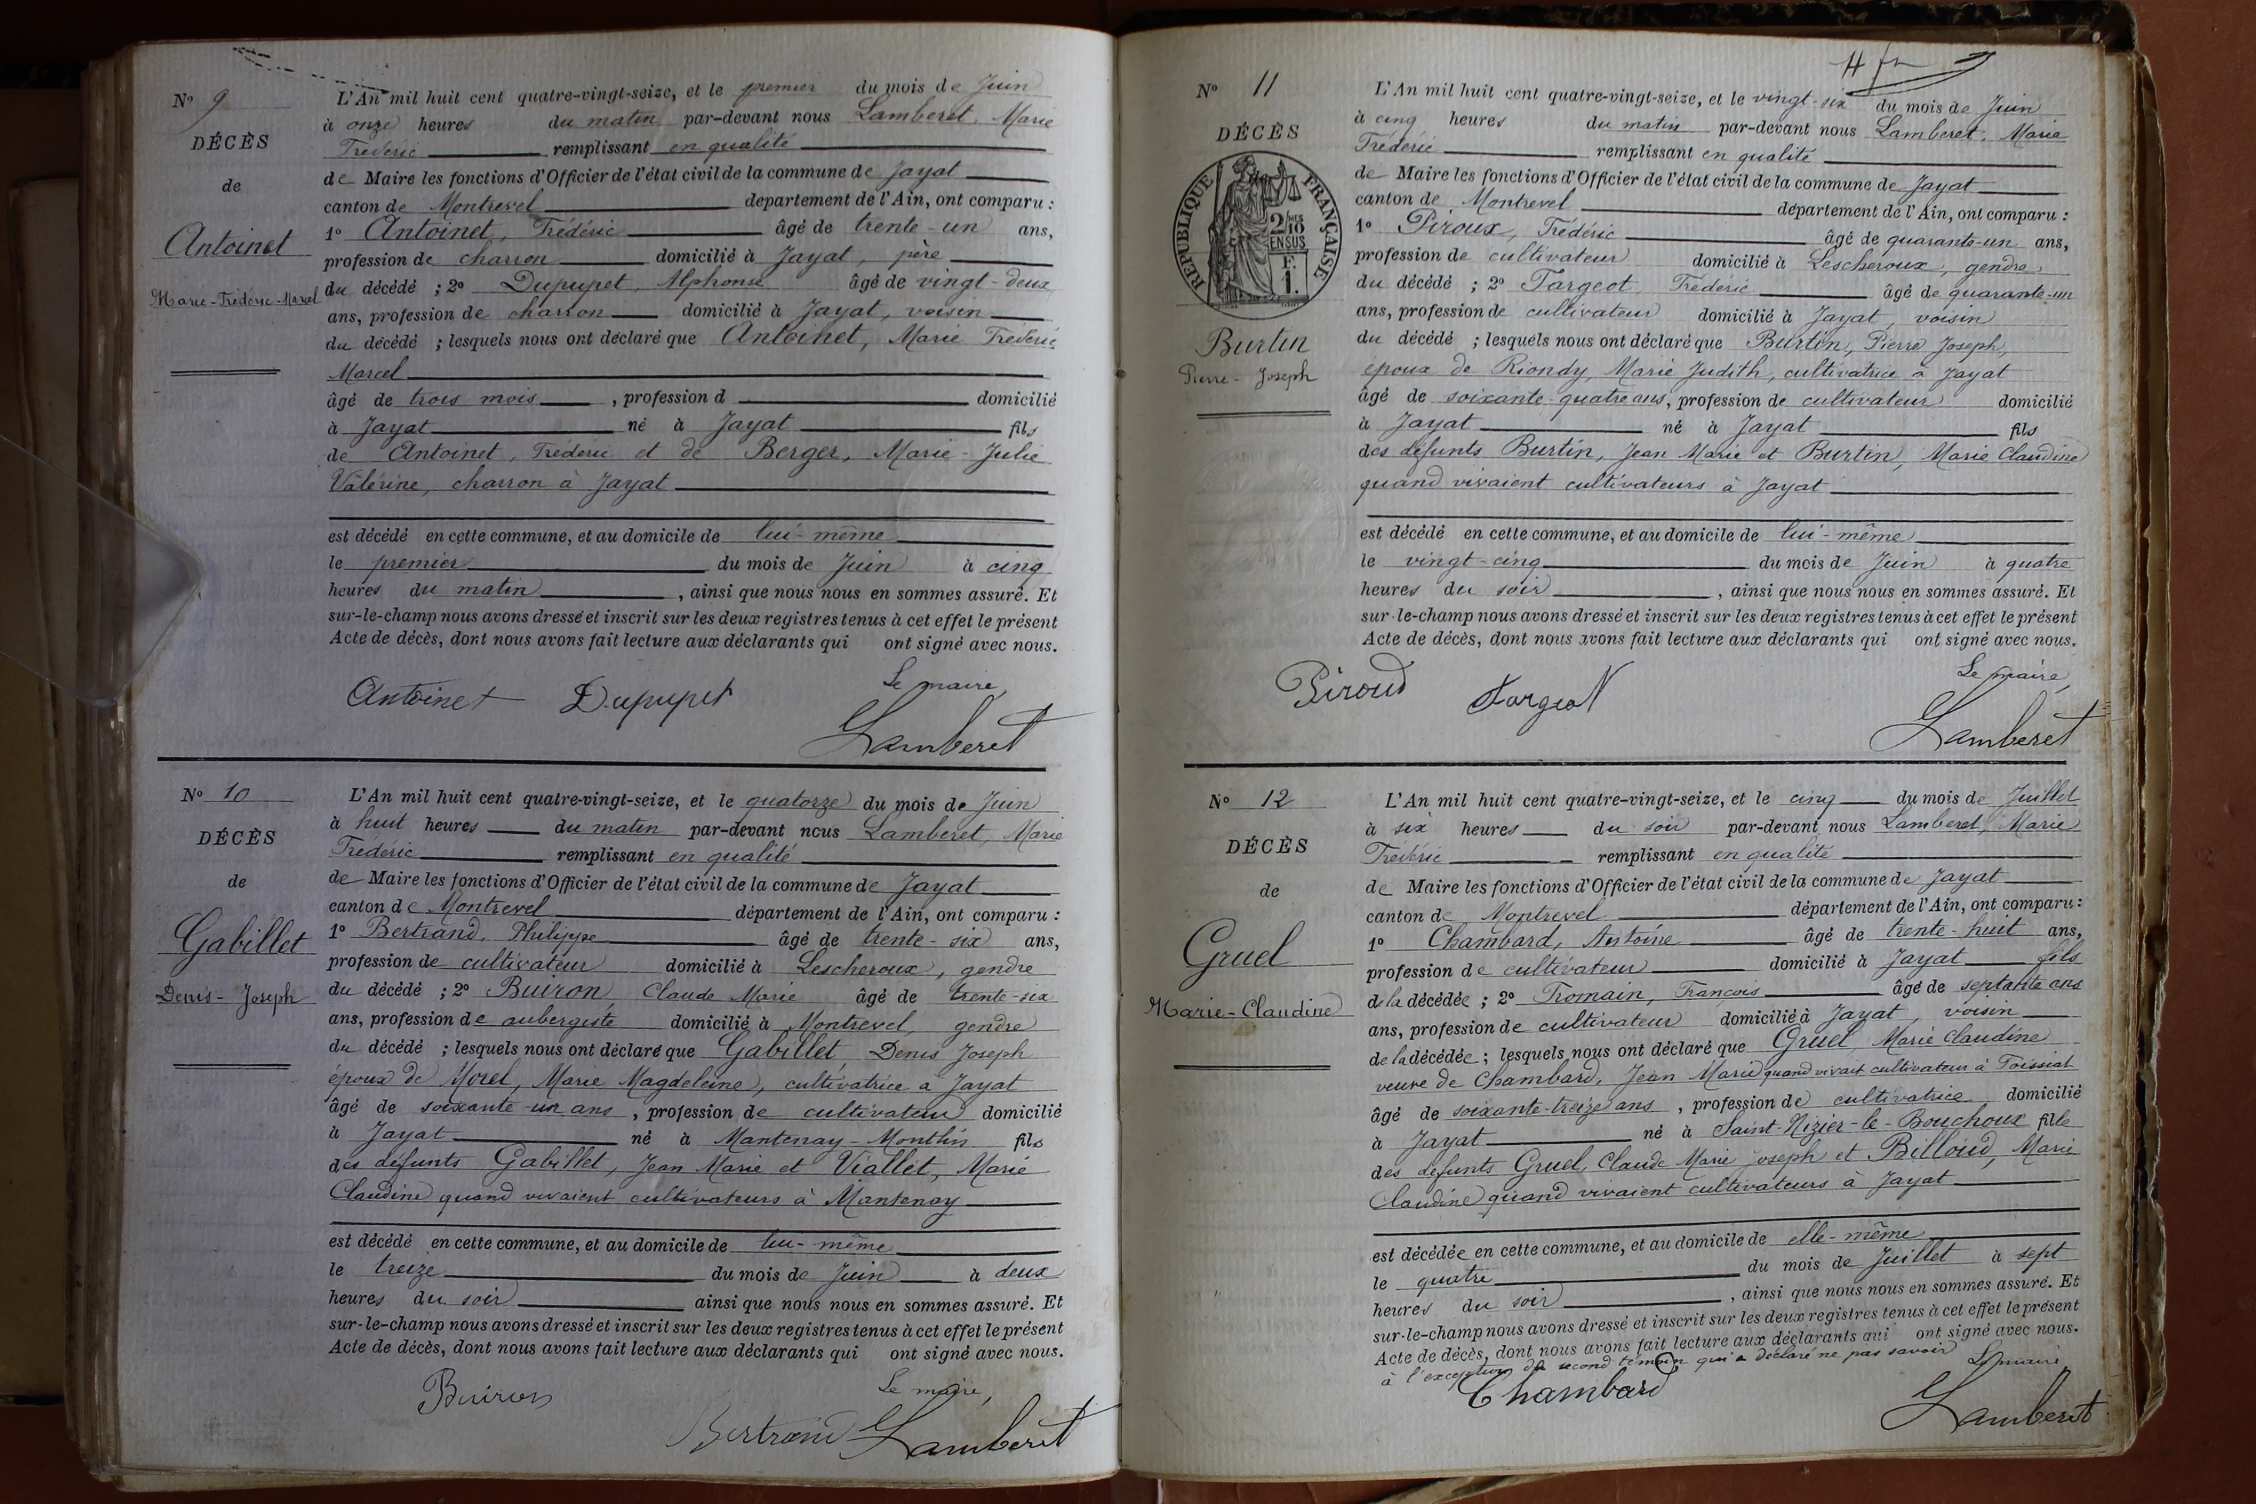 Nº 9
DÉCÈS
de
Antoinet
Marie-Frédéric-Marcel
L'An mil huit cent quatre-vingt-seize, et le premier du mois de Juin
à onze heures du matin par-devant nous Lamberet, Marie
Frédéric remplissant en qualité
de Maire les fonctions d'Officier de l'état civil de la commune de Jayat
canton de Montrevel département de l'Ain, ont comparu :
1º Antoinet, Frédéric âgé de trente-un ans,
profession de charron domicilié à Jayat, père
du décédé ; 2º Dupupet, Alphonse âgé de vingt-deux
ans, profession de charron domicilié à Jayat, voisin
du décédé ; lesquels nous ont déclaré que Antoinet, Marie Frédéric
Marcel
âgé de trois mois, profession d domicilié
à Jayat né à Jayat fils
de Antoinet, Frédéric et de Berger, Marie-Julie
Valérine, charron à Jayat
est décédé en cette commune, et au domicile de lui-même
le premier du mois de Juin à cinq
heures du matin, ainsi que nous nous en sommes assuré. Et
sur-le-champ nous avons dressé et inscrit sur les deux registres tenus à cet effet le présent
Acte de décès, dont nous avons fait lecture aux déclarants qui ont signé avec nous.
Le maire,
Antoinet Dupupet
Lamberet
Nº 10
DÉCÈS
de
Gabillet
Denis-Joseph
L'An mil huit cent quatre-vingt-seize, et le quatorze du mois de Juin
à huit heures du matin par-devant nous Lamberet, Marie
Frédéric remplissant en qualité
de Maire les fonctions d'Officier de l'état civil de la commune de Jayat
canton de Montrevel département de l'Ain, ont comparu :
1º Bertrand, Philippe âgé de trente-six ans,
profession de cultivateur domicilié à Lescheroux, gendre
du décédé ; 2º Buiron, Claude Marie âgé de trente-six
ans, profession de aubergiste domicilié à Montrevel, gendre
du décédé ; lesquels nous ont déclaré que Gabillet, Denis Joseph
époux de Morel, Marie Magdeleine, cultivatrice à Jayat
âgé de soixante-un ans, profession de cultivateur domicilié
à Jayat né à Mantenay-Montlin fils
des défunts Gabillet, Jean Marie et Viallet, Marie
Claudine quand vivaient cultivateurs à Mantenay
est décédé en cette commune, et au domicile de lui-même
le treize du mois de Juin à deux
heures du soir ainsi que nous nous en sommes assuré. Et
sur-le-champ nous avons dressé et inscrit sur les deux registres tenus à cet effet le présent
Acte de décès, dont nous avons fait lecture aux déclarants qui ont signé avec nous.
Le maire,
Buiron
Bertrand Lamberet
Nº 11
DÉCÈS
RÉPUBLIQUE FRANÇAISE
2/10 EN SUS
F.
1.
Burtin
Pierre-Joseph
L'An mil huit cent quatre-vingt-seize, et le vingt-six du mois de Juin
à cinq heures du matin par-devant nous Lamberet, Marie
Frédéric remplissant en qualité
de Maire les fonctions d'Officier de l'état civil de la commune de Jayat
canton de Montrevel département de l'Ain, ont comparu :
1º Piroux, Frédéric âgé de quarante-un ans,
profession de cultivateur domicilié à Lescheroux, gendre
du décédé ; 2º Fargeot, Frédéric âgé de quarante-un
ans, profession de cultivateur domicilié à Jayat, voisin
du décédé ; lesquels nous ont déclaré que Burtin, Pierre Joseph,
époux de Riondy, Marie Judith, cultivatrice à Jayat
âgé de soixante-quatre ans, profession de cultivateur domicilié
à Jayat né à Jayat fils
des défunts Burtin, Jean Marie et Burtin, Marie Claudine
quand vivaient cultivateurs à Jayat
est décédé en cette commune, et au domicile de lui-même
le vingt-cinq du mois de Juin à quatre
heures du soir, ainsi que nous nous en sommes assuré. Et
sur-le-champ nous avons dressé et inscrit sur les deux registres tenus à cet effet le présent
Acte de décès, dont nous avons fait lecture aux déclarants qui ont signé avec nous.
Le maire,
Piroud Fargeot
Lamberet
Nº 12
DÉCÈS
de
Gruel
Marie-Claudine
L'An mil huit cent quatre-vingt-seize, et le cinq du mois de Juillet
à six heures du soir par-devant nous Lamberet, Marie
Frédéric remplissant en qualité
de Maire les fonctions d'Officier de l'état civil de la commune de Jayat
canton de Montrevel département de l'Ain, ont comparu :
1º Chambard, Antoine âgé de trente-huit ans,
profession de cultivateur domicilié à Jayat fils
de la décédée ; 2º Fromain, François âgé de septante ans
ans, profession de cultivateur domicilié à Jayat, voisin
de la décédée ; lesquels nous ont déclaré que Gruel Marie Claudine
veuve de Chambard, Jean Marie quand vivait cultivateur à Foissiat
âgé de soixante-treize ans, profession de cultivatrice domicilié
à Jayat né à Saint-Nizier-le-Bouchoux fille
des défunts Gruel, Claude Marie Joseph et Billoud, Marie
Claudine quand vivaient cultivateurs à Jayat
est décédée en cette commune, et au domicile de elle-même
le quatre du mois de Juillet à sept
heures du soir, ainsi que nous nous en sommes assuré. Et
sur-le-champ nous avons dressé et inscrit sur les deux registres tenus à cet effet le présent
Acte de décès, dont nous avons fait lecture aux déclarants qui ont signé avec nous.
à l'exception du second témoin qui a déclaré ne pas savoir Le maire
Chambard
Lamberet